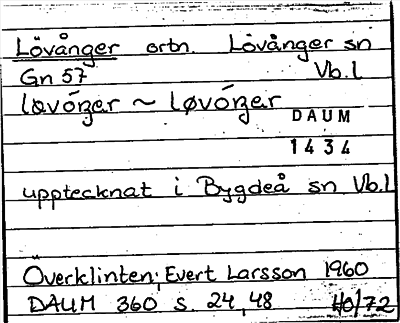 Lövånger ortn. Lövånger sn
Gn 57 Vb.l
løvóŋer ~ løvóŋer
DAUM
1434
upptecknat i Bygdeå sn Vb.l
Överklinten; Evert Larsson 1960
DAUM 360 s. 24, 48 Ho/72